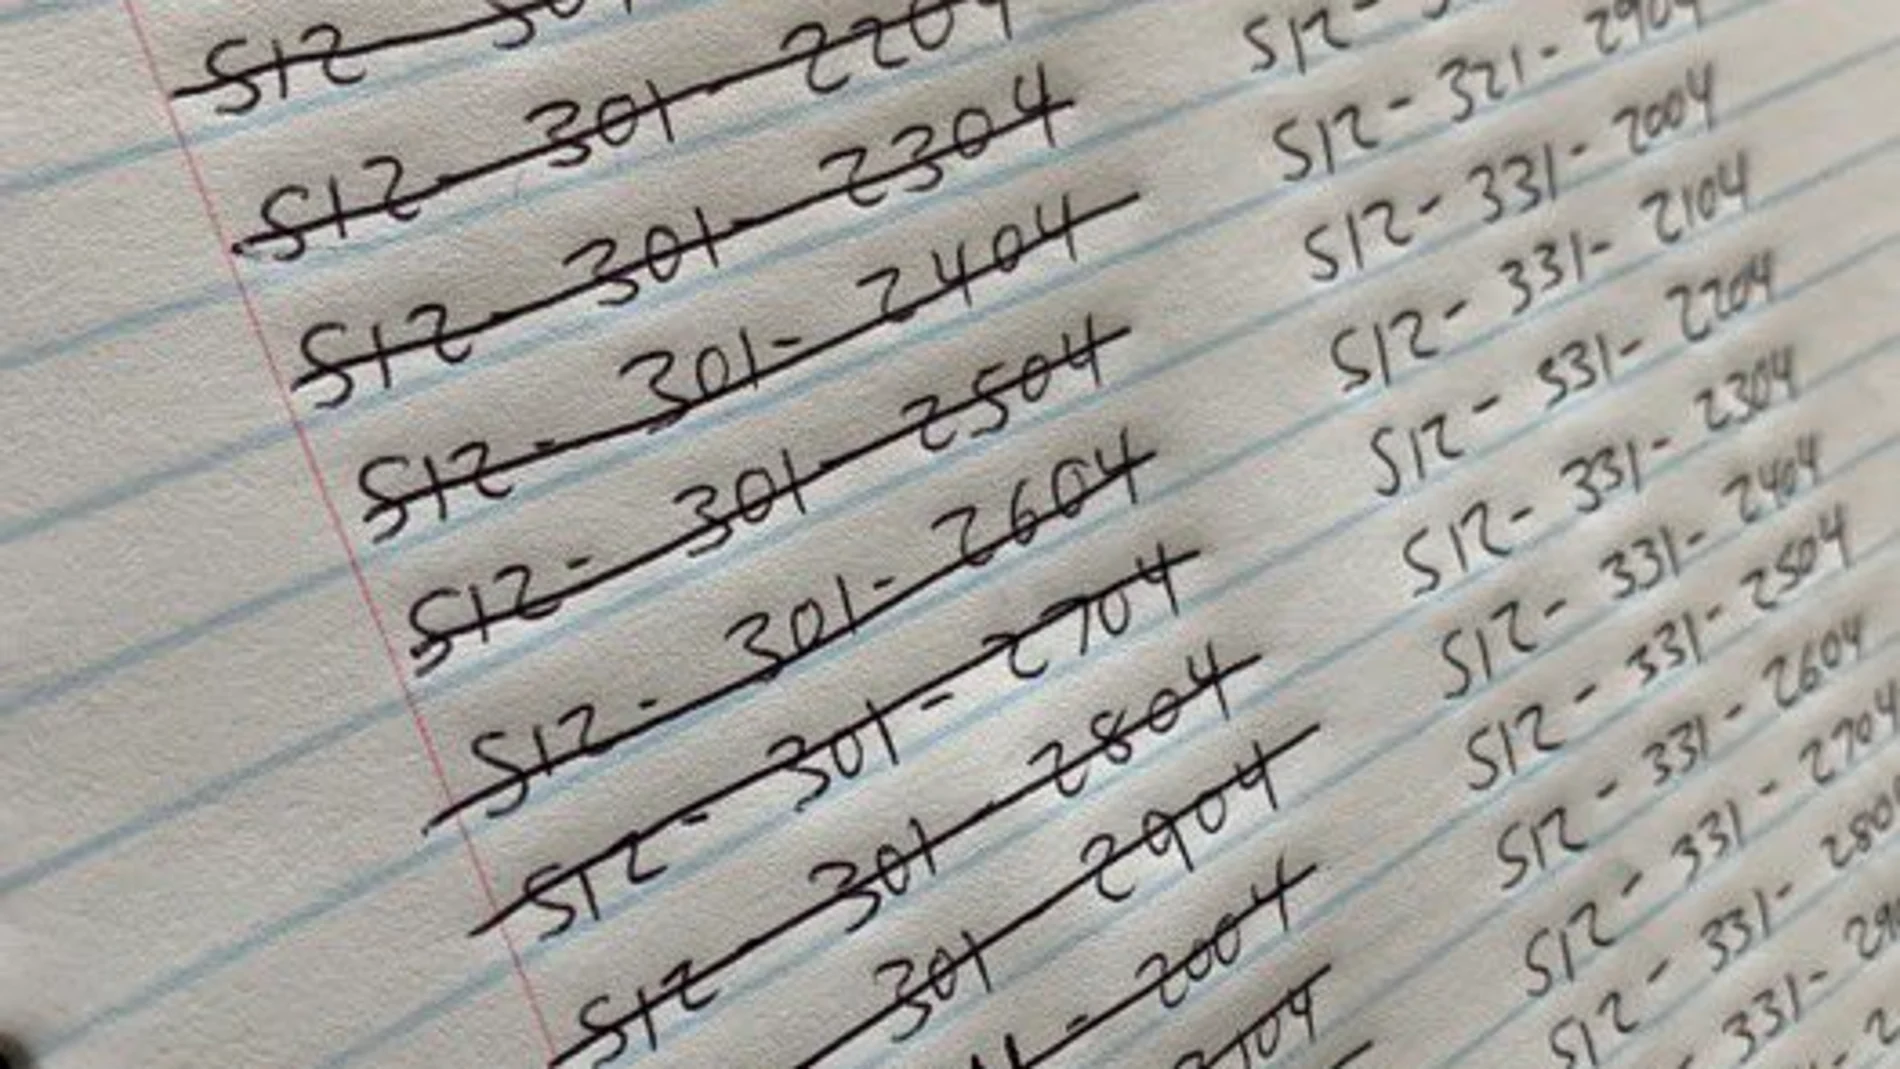 512-301-2204
512-301-2304
512-301-2404
512-301-2504
512-301-2604
512-301-2704
512-301-2804
301-2904
2004
512-321-2904
512-331-2004
512-331-2104
512-331-2204
512-331-2304
512-331-2404
512-331-2504
512-331-2604
512-331-2704
512-331-280
331-29